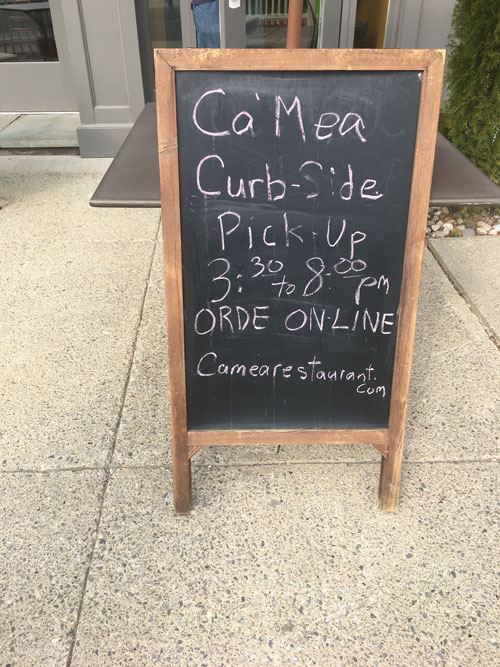 Ca'Mea
Curb-Side
Pick-Up
3:30 to 8:00 pm
ORDE ON-LINE
Camearestaurant.
com